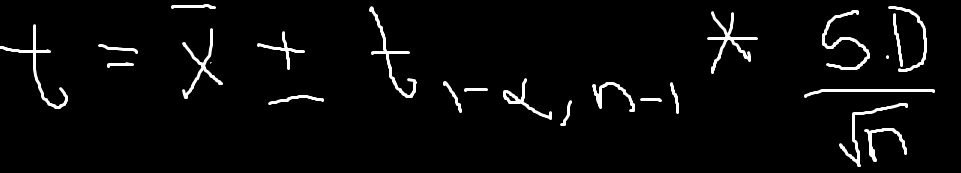 t = x̄ ± t₁₋α, n₋₁ * S.D / √n